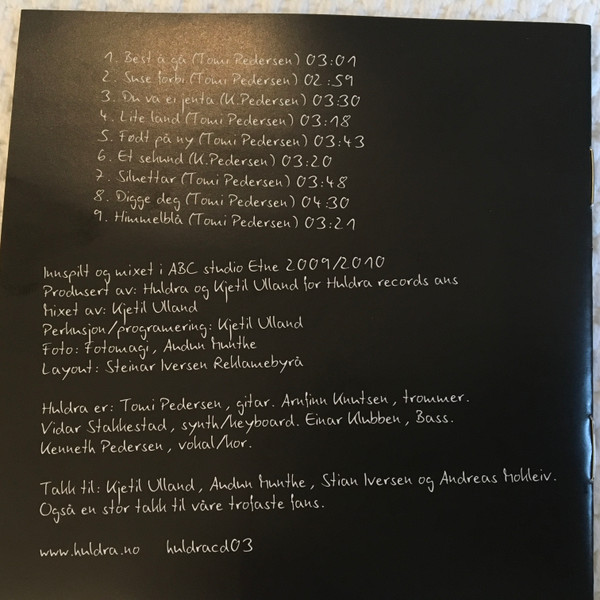 1. Best å gå (Tomi Pedersen) 03:01
2. Suse forbi (Tomi Pedersen) 02:59
3. Du va ei jenta (K.Pedersen) 03:30
4. Lite land (Tomi Pedersen) 03:18
5. Født på ny (Tomi Pedersen) 03:43
6. Et sekund (K.Pedersen) 03:20
7. Silhettar (Tomi Pedersen) 03:48
8. Digge deg (Tomi Pedersen) 04:30
9. Himmelblå (Tomi Pedersen) 03:21
Innspilt og mixet i ABC studio Etne 2009/2010
Produsert av: Huldra og Kjetil Ulland for Huldra records ans
Mixet av: Kjetil Ulland
Perkusjon/programering: Kjetil Ulland
Foto: Fotomagi, Audun Munthe
Layout: Steinar Iversen Reklamebyrå
Huldra er: Tomi Pedersen, gitar. Arnfinn Knutsen, trommer.
Vidar Stakkestad, synth/keyboard. Einar Klubben, Bass.
Kenneth Pedersen, vokal/kor.
Takk til: Kjetil Ulland, Audun Munthe, Stian Iversen og Andreas Mokleiv.
Også en stor takk til våre trofaste fans.
www.huldra.no huldracd03